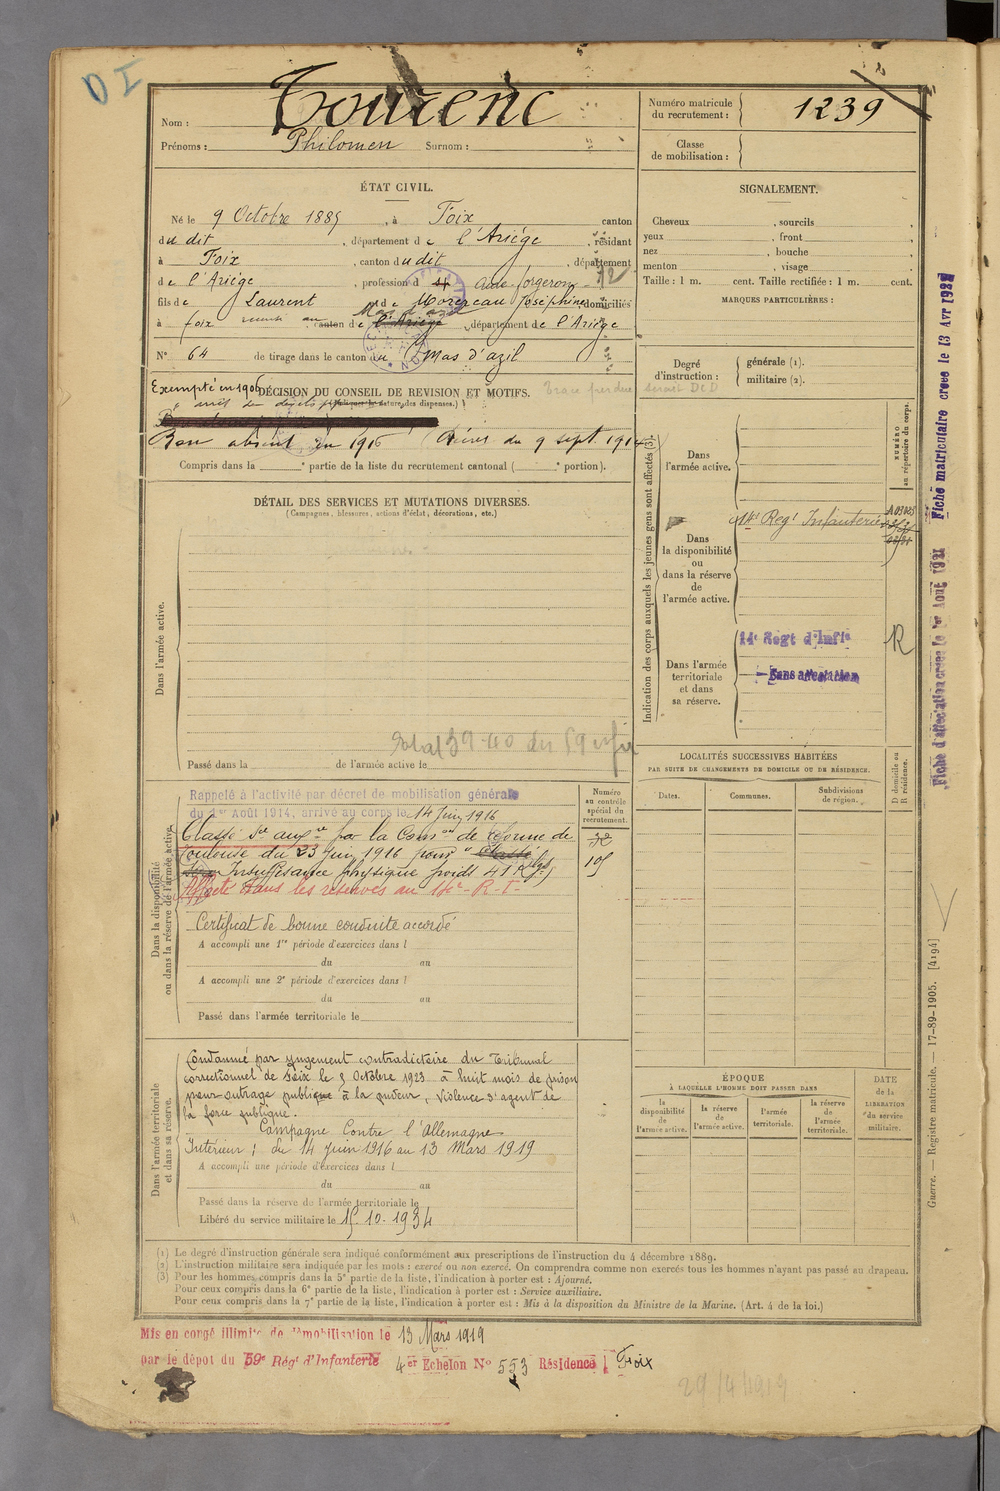 DI
Nom : Tourenc
Prénoms : Philomen Surnom :
Numéro matricule du recrutement : 1239
Classe de mobilisation :
ÉTAT CIVIL.
Né le 9 Octobre 1885, à Foix canton
du dit, département de l'Ariège, résidant
à Foix, canton dudit, département
de l'Ariège, profession d Aide-forgeron 12
fils de Laurent et de Joséphine domiciliés
à foix canton de Mas d'azil l'Ariège, département de l'Ariège
N° 64 de tirage dans le canton du Mas d'azil
SIGNALEMENT.
Cheveux , sourcils
yeux , front
nez , bouche
menton , visage
Taille : 1 m. cent. Taille rectifiée : 1 m. cent.
MARQUES PARTICULIÈRES :
Degré d'instruction : générale (1).
militaire (2).
Exempté en 1906 DÉCISION DU CONSEIL DE REVISION ET MOTIFS.
Bon absent en 1916 (Décret du 9 sept 1914
Compris dans la ° partie de la liste du recrutement cantonal ( ° portion).
DÉTAIL DES SERVICES ET MUTATIONS DIVERSES.
(Campagnes, blessures, actions d'éclat, décorations, etc.)
Dans l'armée active.
Passé dans la de l'armée active le
Indication des corps auxquels les jeunes gens sont affectés (3).
NUMÉRO au répertoire du corps.
Dans l'armée active.
Dans la disponibilité ou dans la réserve de l'armée active.
14e Regt Infanterie
Dans l'armée territoriale et dans sa réserve.
14e Regt d'Infie
Sans affectation
R
LOCALITÉS SUCCESSIVES HABITÉES
PAR SUITE DE CHANGEMENTS DE DOMICILE OU DE RÉSIDENCE.
D domicile ou R résidence.
Dates. Communes. Subdivisions de région.
Dans la disponibilité ou dans la réserve de l'armée active.
Numéro au contrôle spécial du recrutement.
Rappelé à l'activité par décret de mobilisation générale
du 1er Août 1914, arrivé au corps le 14 Juin 1916
Classé Sce auxre par la Comon de réforme de
Toulouse du 23 Juin 1916 pour
Insuffisance physique poids 41 Kgs
Affecté dans les réserves au 14e R-I-
Certificat de bonne conduite accordé
A accompli une 1re période d'exercices dans l
du au
A accompli une 2e période d'exercices dans l
du au
Passé dans l'armée territoriale le
Dans l'armée territoriale et dans sa réserve.
Condamné par jugement contradictoire du Tribunal
correctionnel de Foix le 5 Octobre 1923 à huit mois de prison
pour outrage publique à la pudeur, violence s/ agent de
la force publique.
Campagne Contre l'Allemagne
Intérieur : du 14 Juin 1916 au 13 Mars 1919
A accompli une période d'exercices dans l
du au
Passé dans la réserve de l'armée territoriale le
Libéré du service militaire le 15.10.1934
ÉPOQUE
À LAQUELLE L'HOMME DOIT PASSER DANS
la disponibilité de l'armée active. la réserve de l'armée active. l'armée territoriale. la réserve de l'armée territoriale.
DATE de la LIBÉRATION du service militaire.
(1) Le degré d'instruction générale sera indiqué conformément aux prescriptions de l'instruction du 4 décembre 1889.
(2) L'instruction militaire sera indiquée par les mots : exercé ou non exercé. On comprendra comme non exercés tous les hommes n'ayant pas passé au drapeau.
(3) Pour les hommes compris dans la 5e partie de la liste, l'indication à porter est : Ajourné.
Pour ceux compris dans la 6e partie de la liste, l'indication à porter est : Service auxiliaire.
Pour ceux compris dans la 7e partie de la liste, l'indication à porter est : Mis à la disposition du Ministre de la Marine. (Art. 4 de la loi.)
Mis en congé illimité de démobilisation le 13 Mars 1919
par le dépot du 59e Régt d'Infanterie 4er Echelon N° 553 Résidence Foix
29/4/1919
Fiche d'affectation creee le 1er Août 1921 Fiche matriculaire creee le 13 Avr
Guerre. — Registre matricule. — 17-89-1905. [4194]